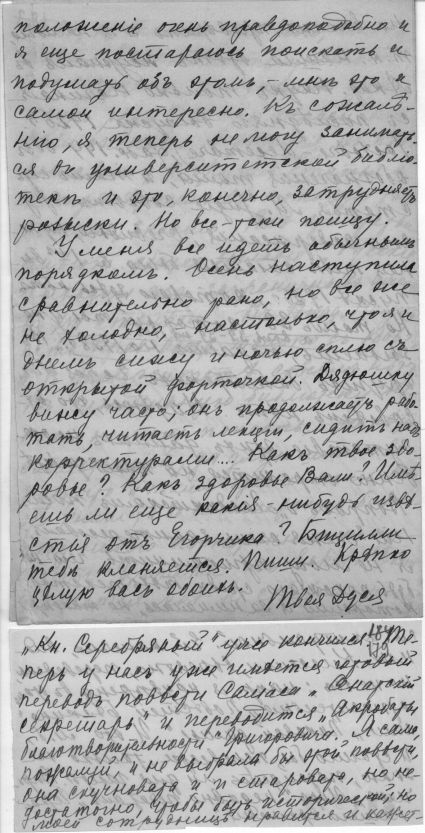 положенiе очень правдоподобно и
я еще постараюсь поискать и
подумать объ этомъ, – мнѣ это и
самой интересно. Къ сожалѣ-
нiю, я теперь не могу занимать-
ся въ университетской библiо-
текѣ и это, конечно, затрудняетъ
розыски. Но все-таки поищу.
У меня все идетъ обычнымъ
порядкомъ. Осень наступила
сравнительно рано, но все же
не холодно, настолько, что я и
днемъ сижу и ночью сплю съ
открытой форточкой. Дядюшку
вижу часто; онъ продолжаетъ рабо-
тать, читаетъ лекцiи, сидитъ надъ
корректурами... Какъ твое здо-
ровье? Какъ здоровье Вали? Имѣ-
ешь ли еще какiя-нибудь извѣ-
стiя отъ Егорчика? Бицилли
тебѣ кланяется. Пиши. Крѣпко
цѣлую васъ обоихъ.
Твоя Дуся
„Кн. Серебряный" уже кончился. Те-
перь у насъ уже имѣется готовый
переводъ повѣсти Салiаса „Сенатскiй
секретарь" и переводится „Акробаты
благотворительности" Григоровича. Я сама,
пожалуй, и не выбрала бы этой повѣсти,
она скучновата и и старовата, но не-
достаточно, чтобы быть исторической, но
моей сотрудницѣ нравится и кажет-